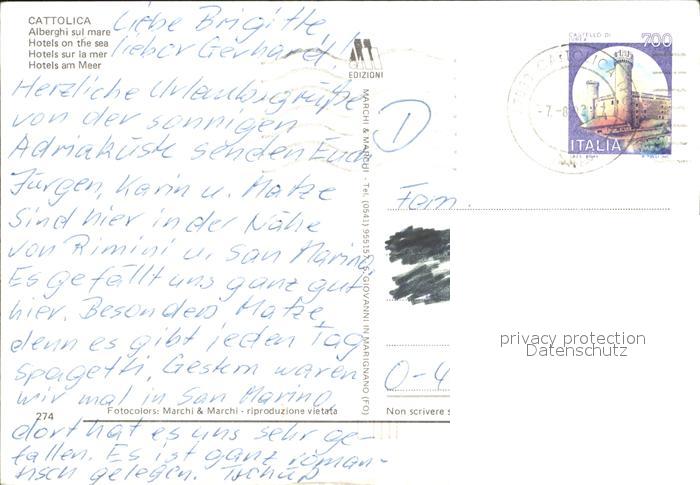 CATTOLICA
Alberghi sul mare
Hotels on the sea
Hotels sur la mer
Hotels am Meer
Liebe Brigitte
lieber Gerhard!
Herzliche Urlaubsgrüße
von der sonnigen
Adriaküste senden Euch
Jürgen, Karin u. Matze
Sind hier in der Nähe
von Rimini u. San Marino,
Es gefällt uns ganz gut
hier. Besonders Matze,
denn es gibt jeden Tag
Spagetti, Gestern waren
wir mal in San Marino,
dort hat es uns sehr ge-
fallen. Es ist ganz roman-
tisch gelegen. Tschüß
274
Fotocolors: Marchi & Marchi - riproduzione vietata
EDIZIONI
MARCHI & MARCHI - Tel. (0541) 955157 S. GIOVANNI IN MARIGNANO (FO)
D
CASTELLO DI
IVREA
700
ITALIA
CATTOLICA
Fam.
O-4
Non scrivere s
privacy protection
Datenschutz